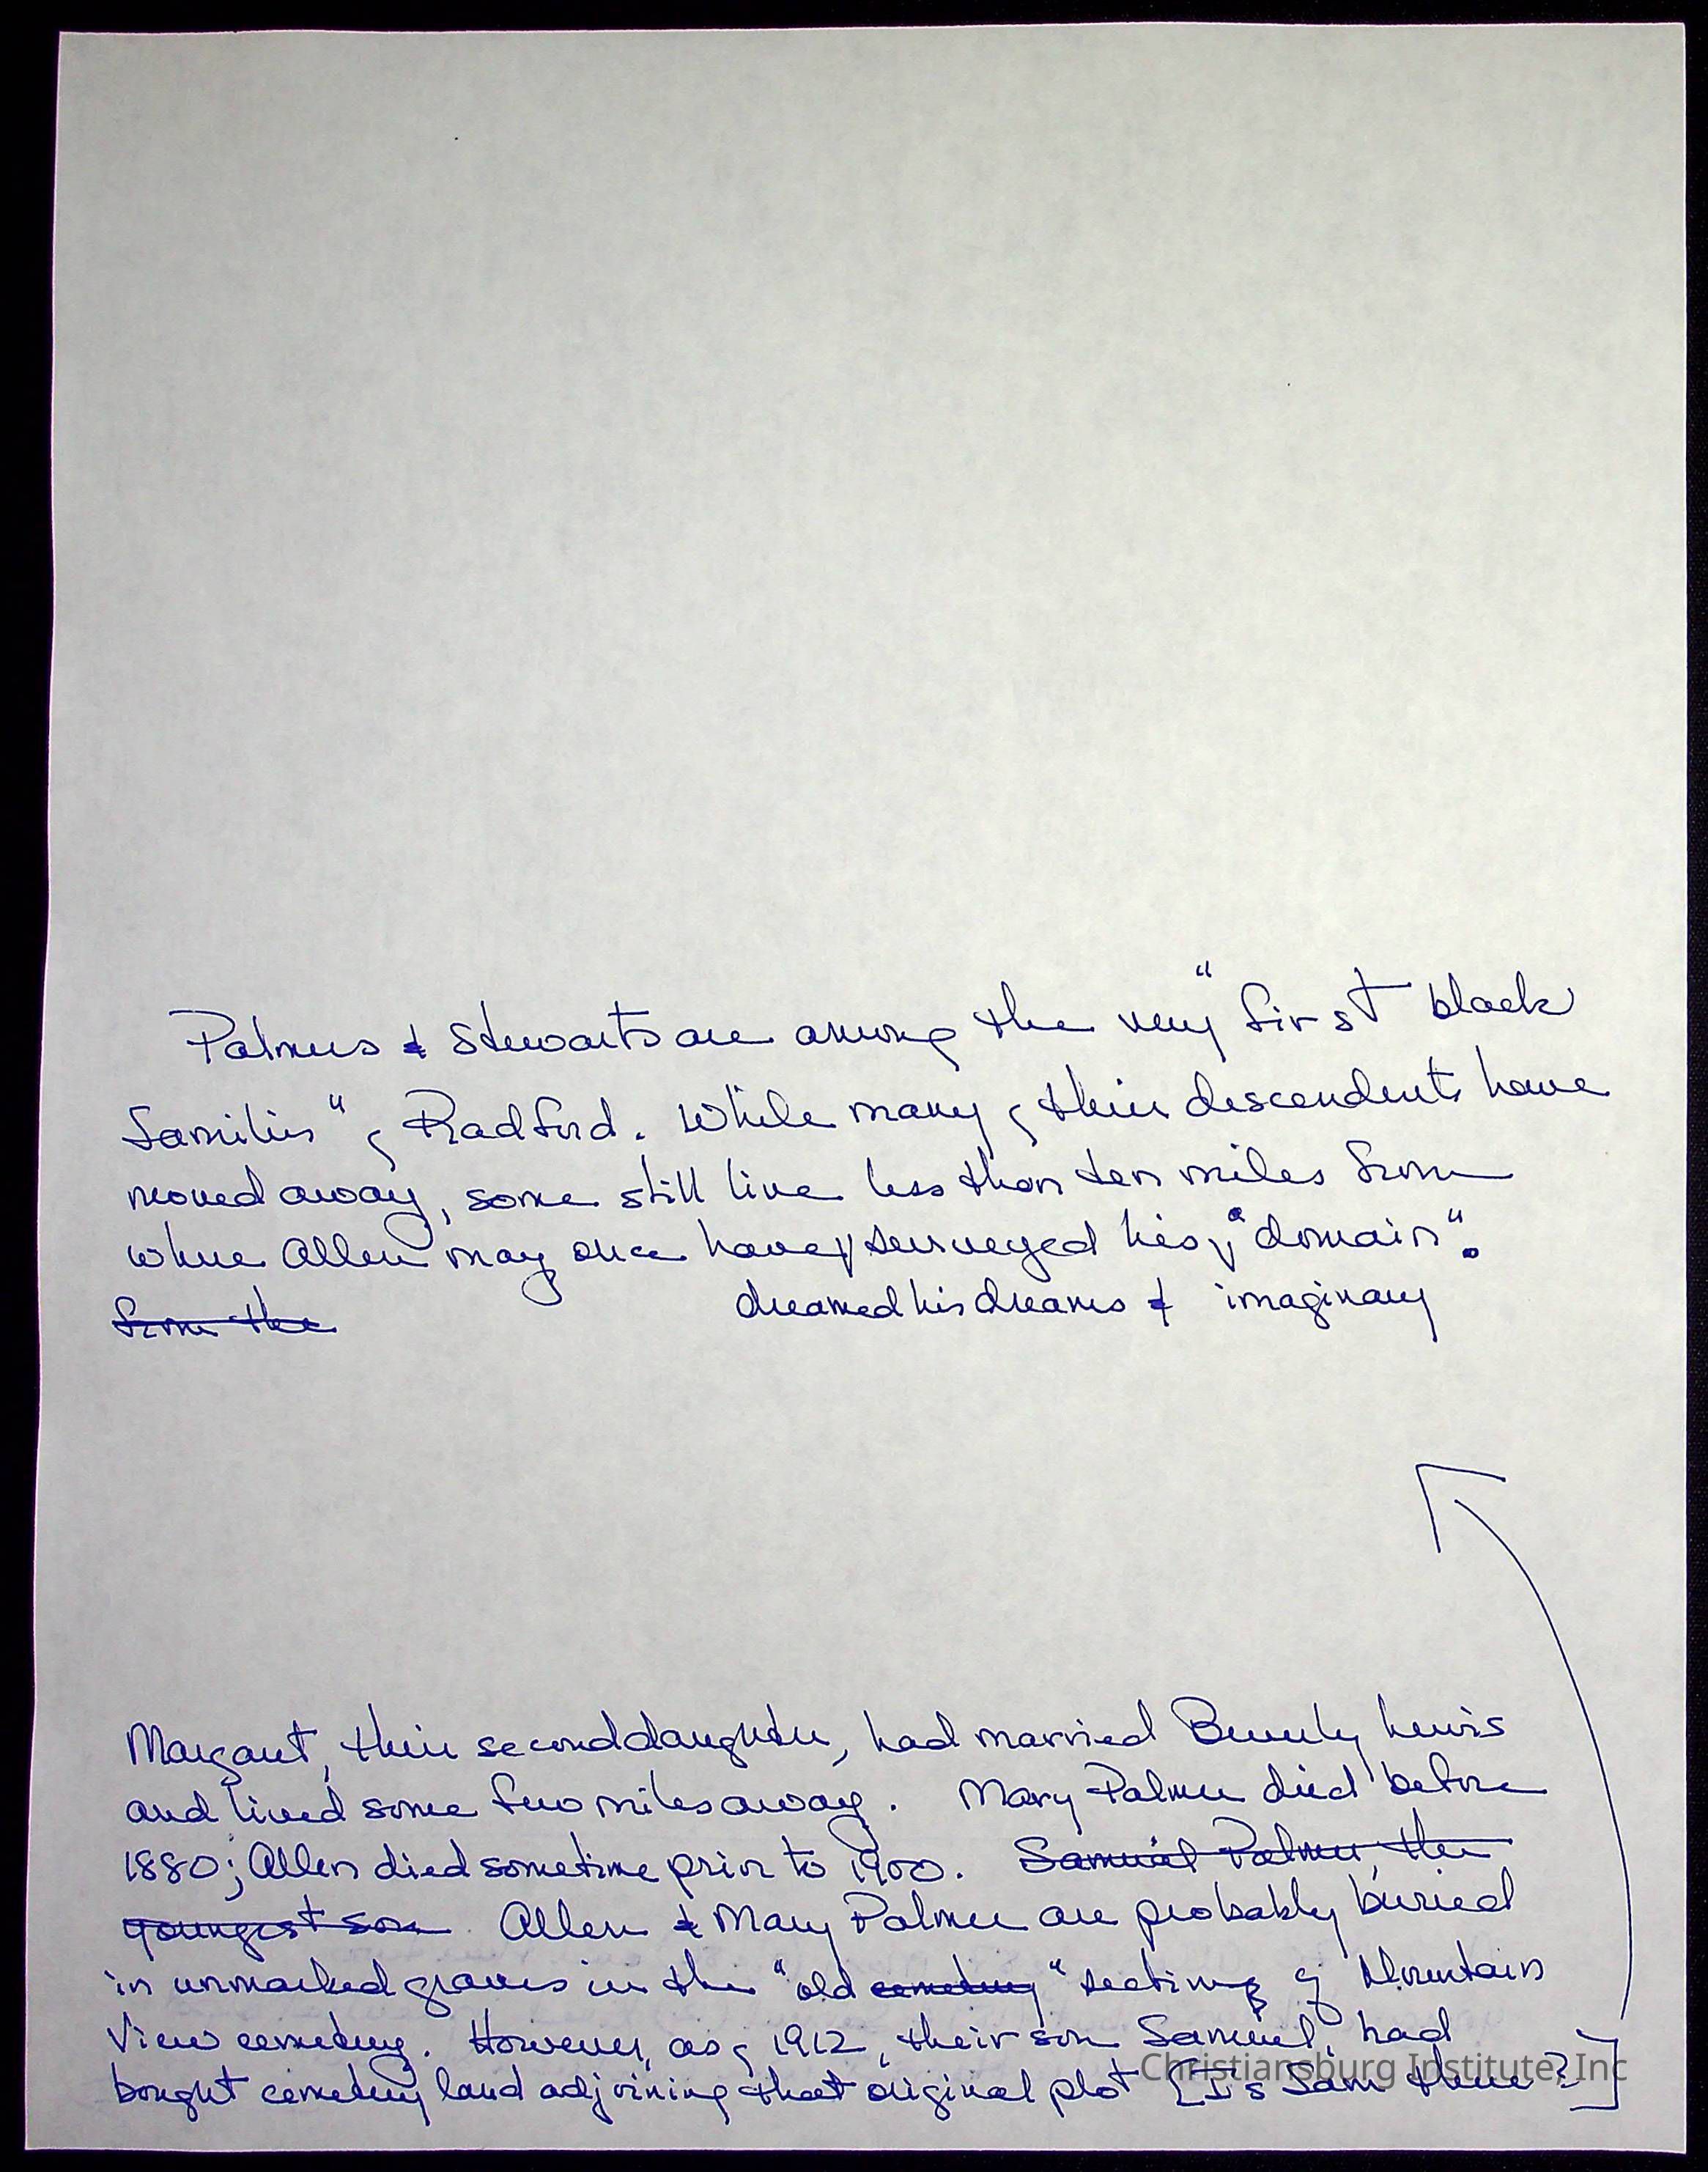 Palmers & Stewarts are among the very "first black
families" of Radford. While many of their descendents have
moved away, some still live less than ten miles from
where Allen may once have surveyed his "domain".
from the dreamed his dreams & imaginary
Margaret, their second daughter, had married Beverly Lewis
and lived some two miles away. Mary Palmer died before
1880; Allen died sometime prior to 1900. Samuel Palmer, the
youngest son Allen & Mary Palmer are probably buried
in unmarked graves in the "old cemetery" section of Mountain
View cemetery. However, as of 1912, their son Samuel, had
bought cemetery land adjoining that original plot [Is Sam there?]
Christiansburg Institute, Inc